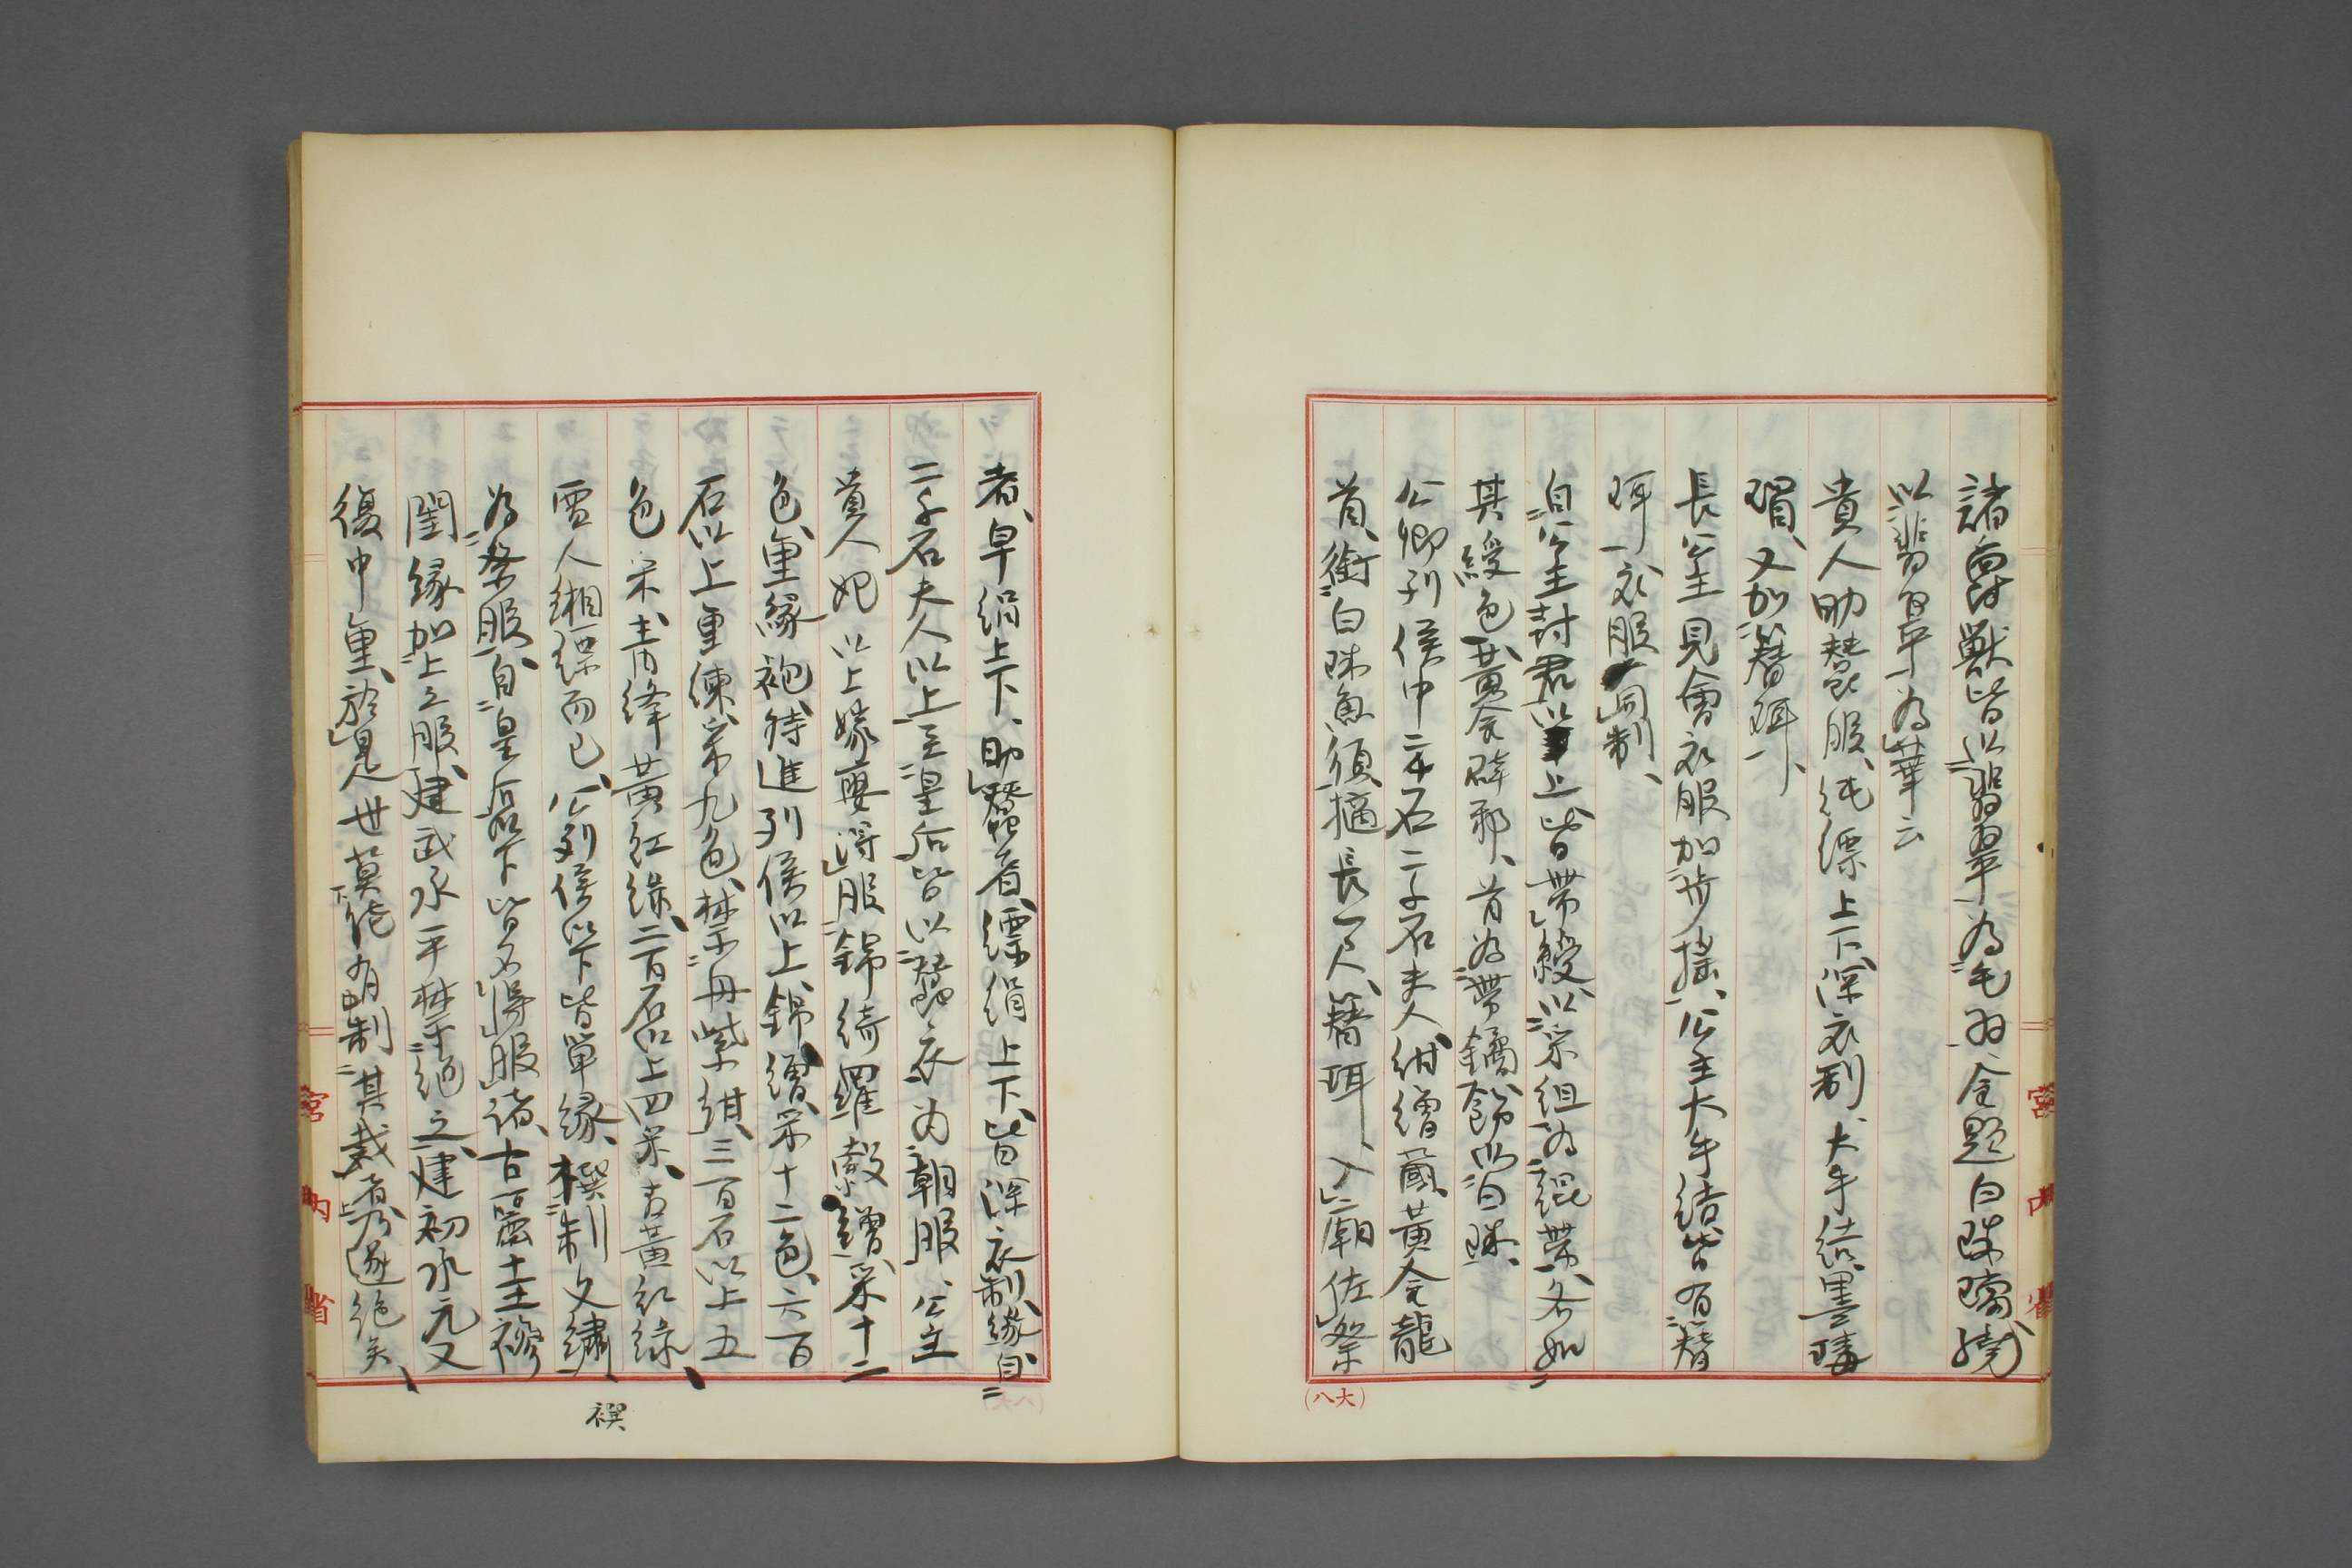 諸爵獣皆以翡翠為毛羽金題白珠璫繞
以翡翠為華云
貴人助蠶服純縹上下深衣制大手結墨瑇
瑁又加簪珥
長公主見會衣服加歩摇公主大手結皆有簪
珥衣服同制
自公主封君以上皆帯綬以采組為緄帯各如
其綬色黄金辟邪首為帯鐍飾以白珠
公卿列侯中二千石二千石夫人紺繒蔮黄金龍
首銜白珠魚須擿長一尺簪珥入廟佐祭
者皁絹上下助蠶者縹絹上下皆深衣制縁自
二千石夫人以上至皇后皆以蠶衣为朝服公主
貴人妃以上嫁娶得服錦綺羅縠繒采十二
色重縁袍特進列侯以上錦繒采十二色六百
石以上重練采九色禁丹紫紺三百石以上五
色采青絳黄紅緑二百石以上四采青黄紅緑
賈人緗縹而已公列侯以下皆単縁襈制文繍
為祭服自皇后以下皆不得服諸古麗圭襂
閨縁加上之服建武永平禁絶之建初永元又
復中重於是世莫能有制其裁者乃遂絶矣
襈
宮内省
宮内省
（八大）